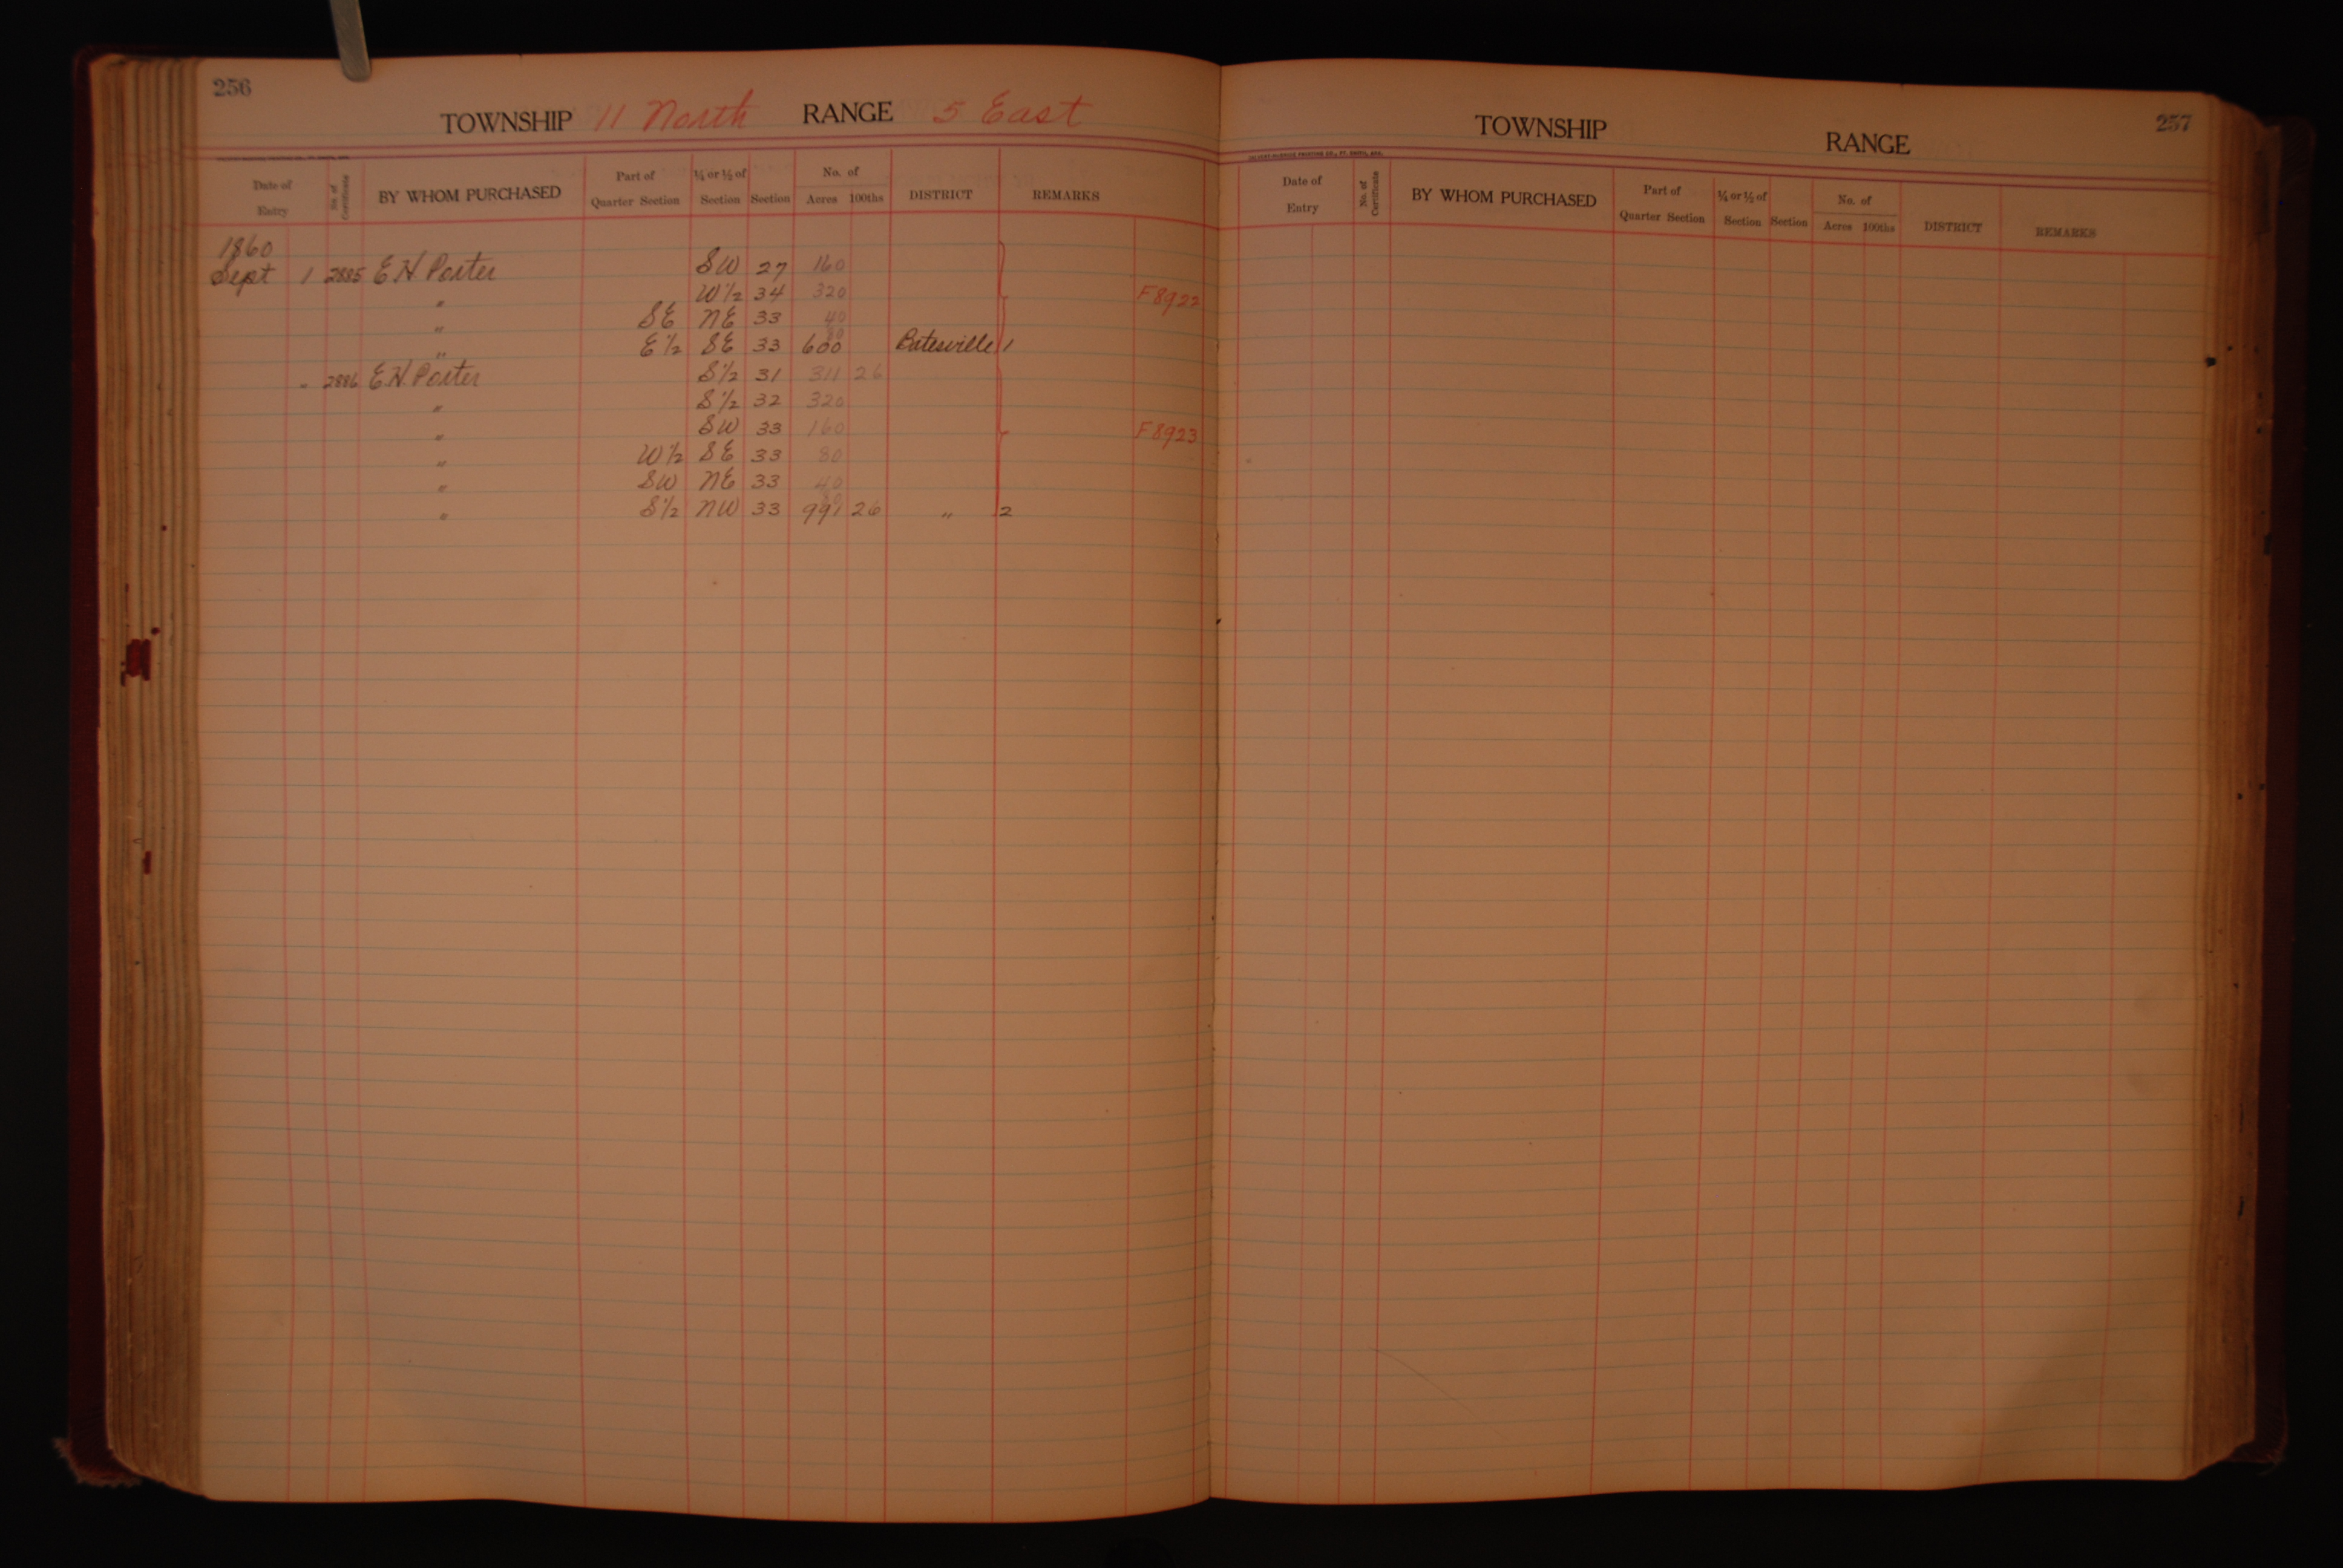 256
TOWNSHIP 11 North RANGE 5 East
Date of Entry No. of Certificate BY WHOM PURCHASED Part of Quarter Section ¼ or ½ of Section Section No. of Acres 100ths DISTRICT REMARKS
1860
Sept 1 2885 E.H. Porter SW 27 160
" W½ 34 320 F8922
" SE NE 33 40
80
" E½ SE 33 600 Batesville 1
" 2886 E.H. Porter S½ 31 311 26
" S½ 32 320
" SW 33 160 F8923
" W½ SE 33 80
" SW NE 33 40
80
" S½ NW 33 991 26 " 2
257
TOWNSHIP RANGE
Date of Entry No. of Certificate BY WHOM PURCHASED Part of Quarter Section ¼ or ½ of Section Section No. of Acres 100ths DISTRICT REMARKS